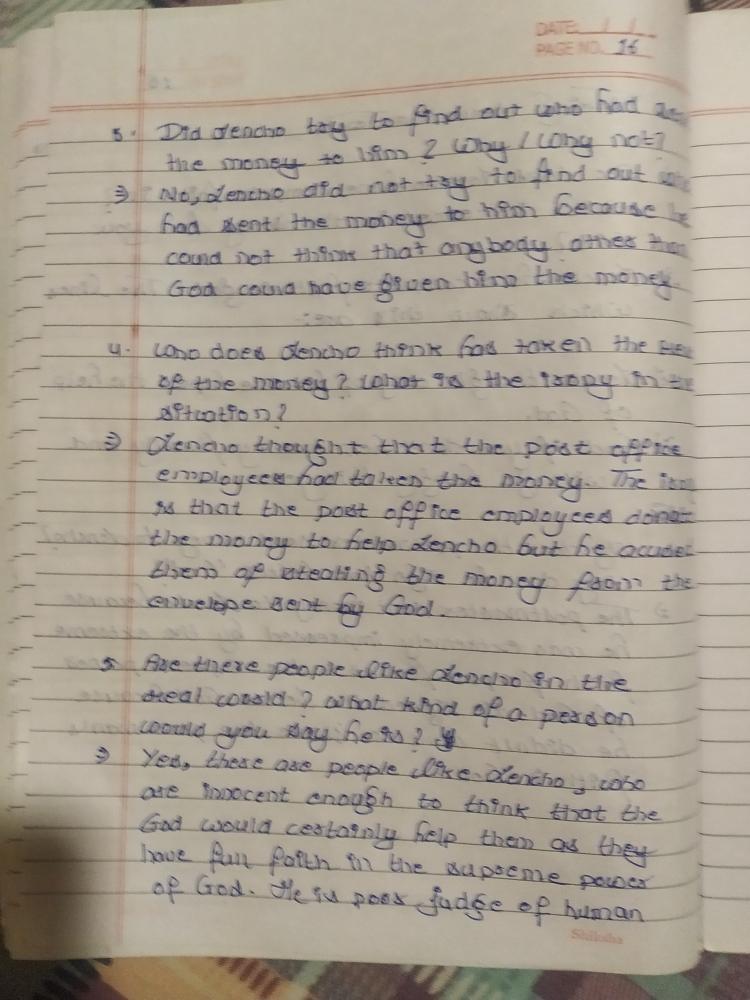 DATE: / /
PAGE NO. 16
3. Did Lencho try to find out who had
the money to him? Why / Why not?
⇒ No, Lencho did not try to find out
had sent the money to him because
could not think that anybody other than
God could have given him the money.
4. Who does Lencho think has taken the
of the money? What is the irony in the
situation?
⇒ Lencho thought that the post office
employees had taken the money. The irony
is that the post office employees
the money to help Lencho but he accused
them of stealing the money from the
envelope sent by God.
5 Are there people like Lencho in the
real world? What kind of a person
would you say he is?
⇒ Yes, there are people like Lencho, who
are innocent enough to think that the
God would certainly help them as they
have full faith in the supreme power
of God. He is poor judge of human
Shiksha